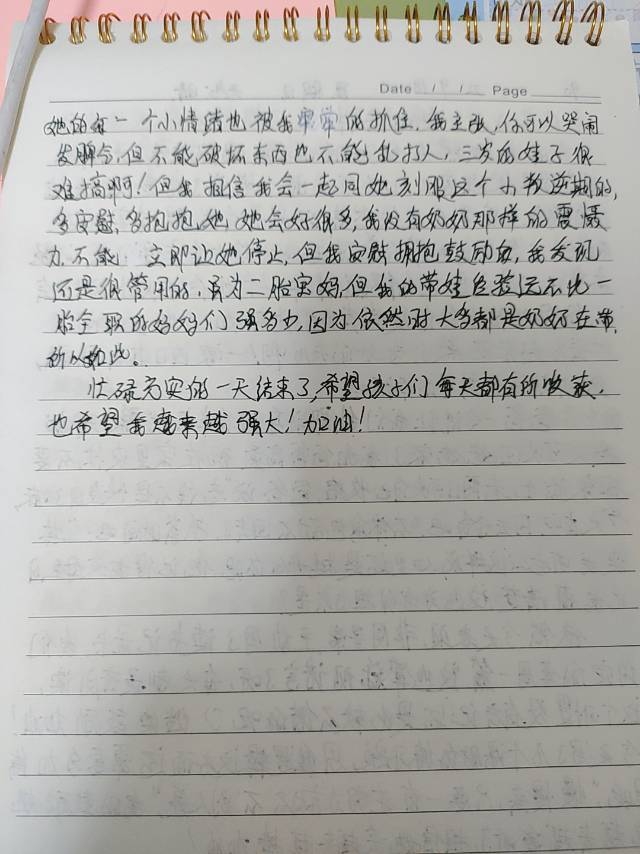 Date / / Page
她的每一个小情绪也被我牢牢的抓住，我主张，你可以哭闹
发脾气，但不能破坏东西也不能乱打人，三岁的娃子很
难搞啊！但我相信我会一起同她刻服这个小叛逆期的，
多安慰，多抱抱她她会好很多，我没有奶奶那样的震慑
力不能 立即让她停止，但我安慰拥抱鼓励她，我发现
还是很管用的，身为二胎宝妈，但我的带娃经验远不比一
胎全职的妈妈们强多少，因为依然时大多都是奶奶在带，
所以如此。
忙碌充实的一天结束了，希望孩子们每天都有所收获，
也希望我越来越强大！加油！